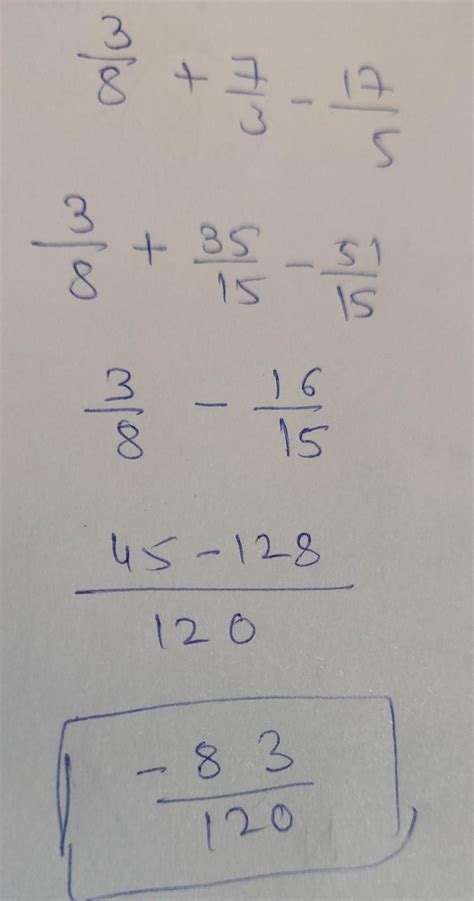 3/8 + 7/3 - 17/5
3/8 + 35/15 - 51/15
3/8 - 16/15
45 - 128 / 120
-83/120